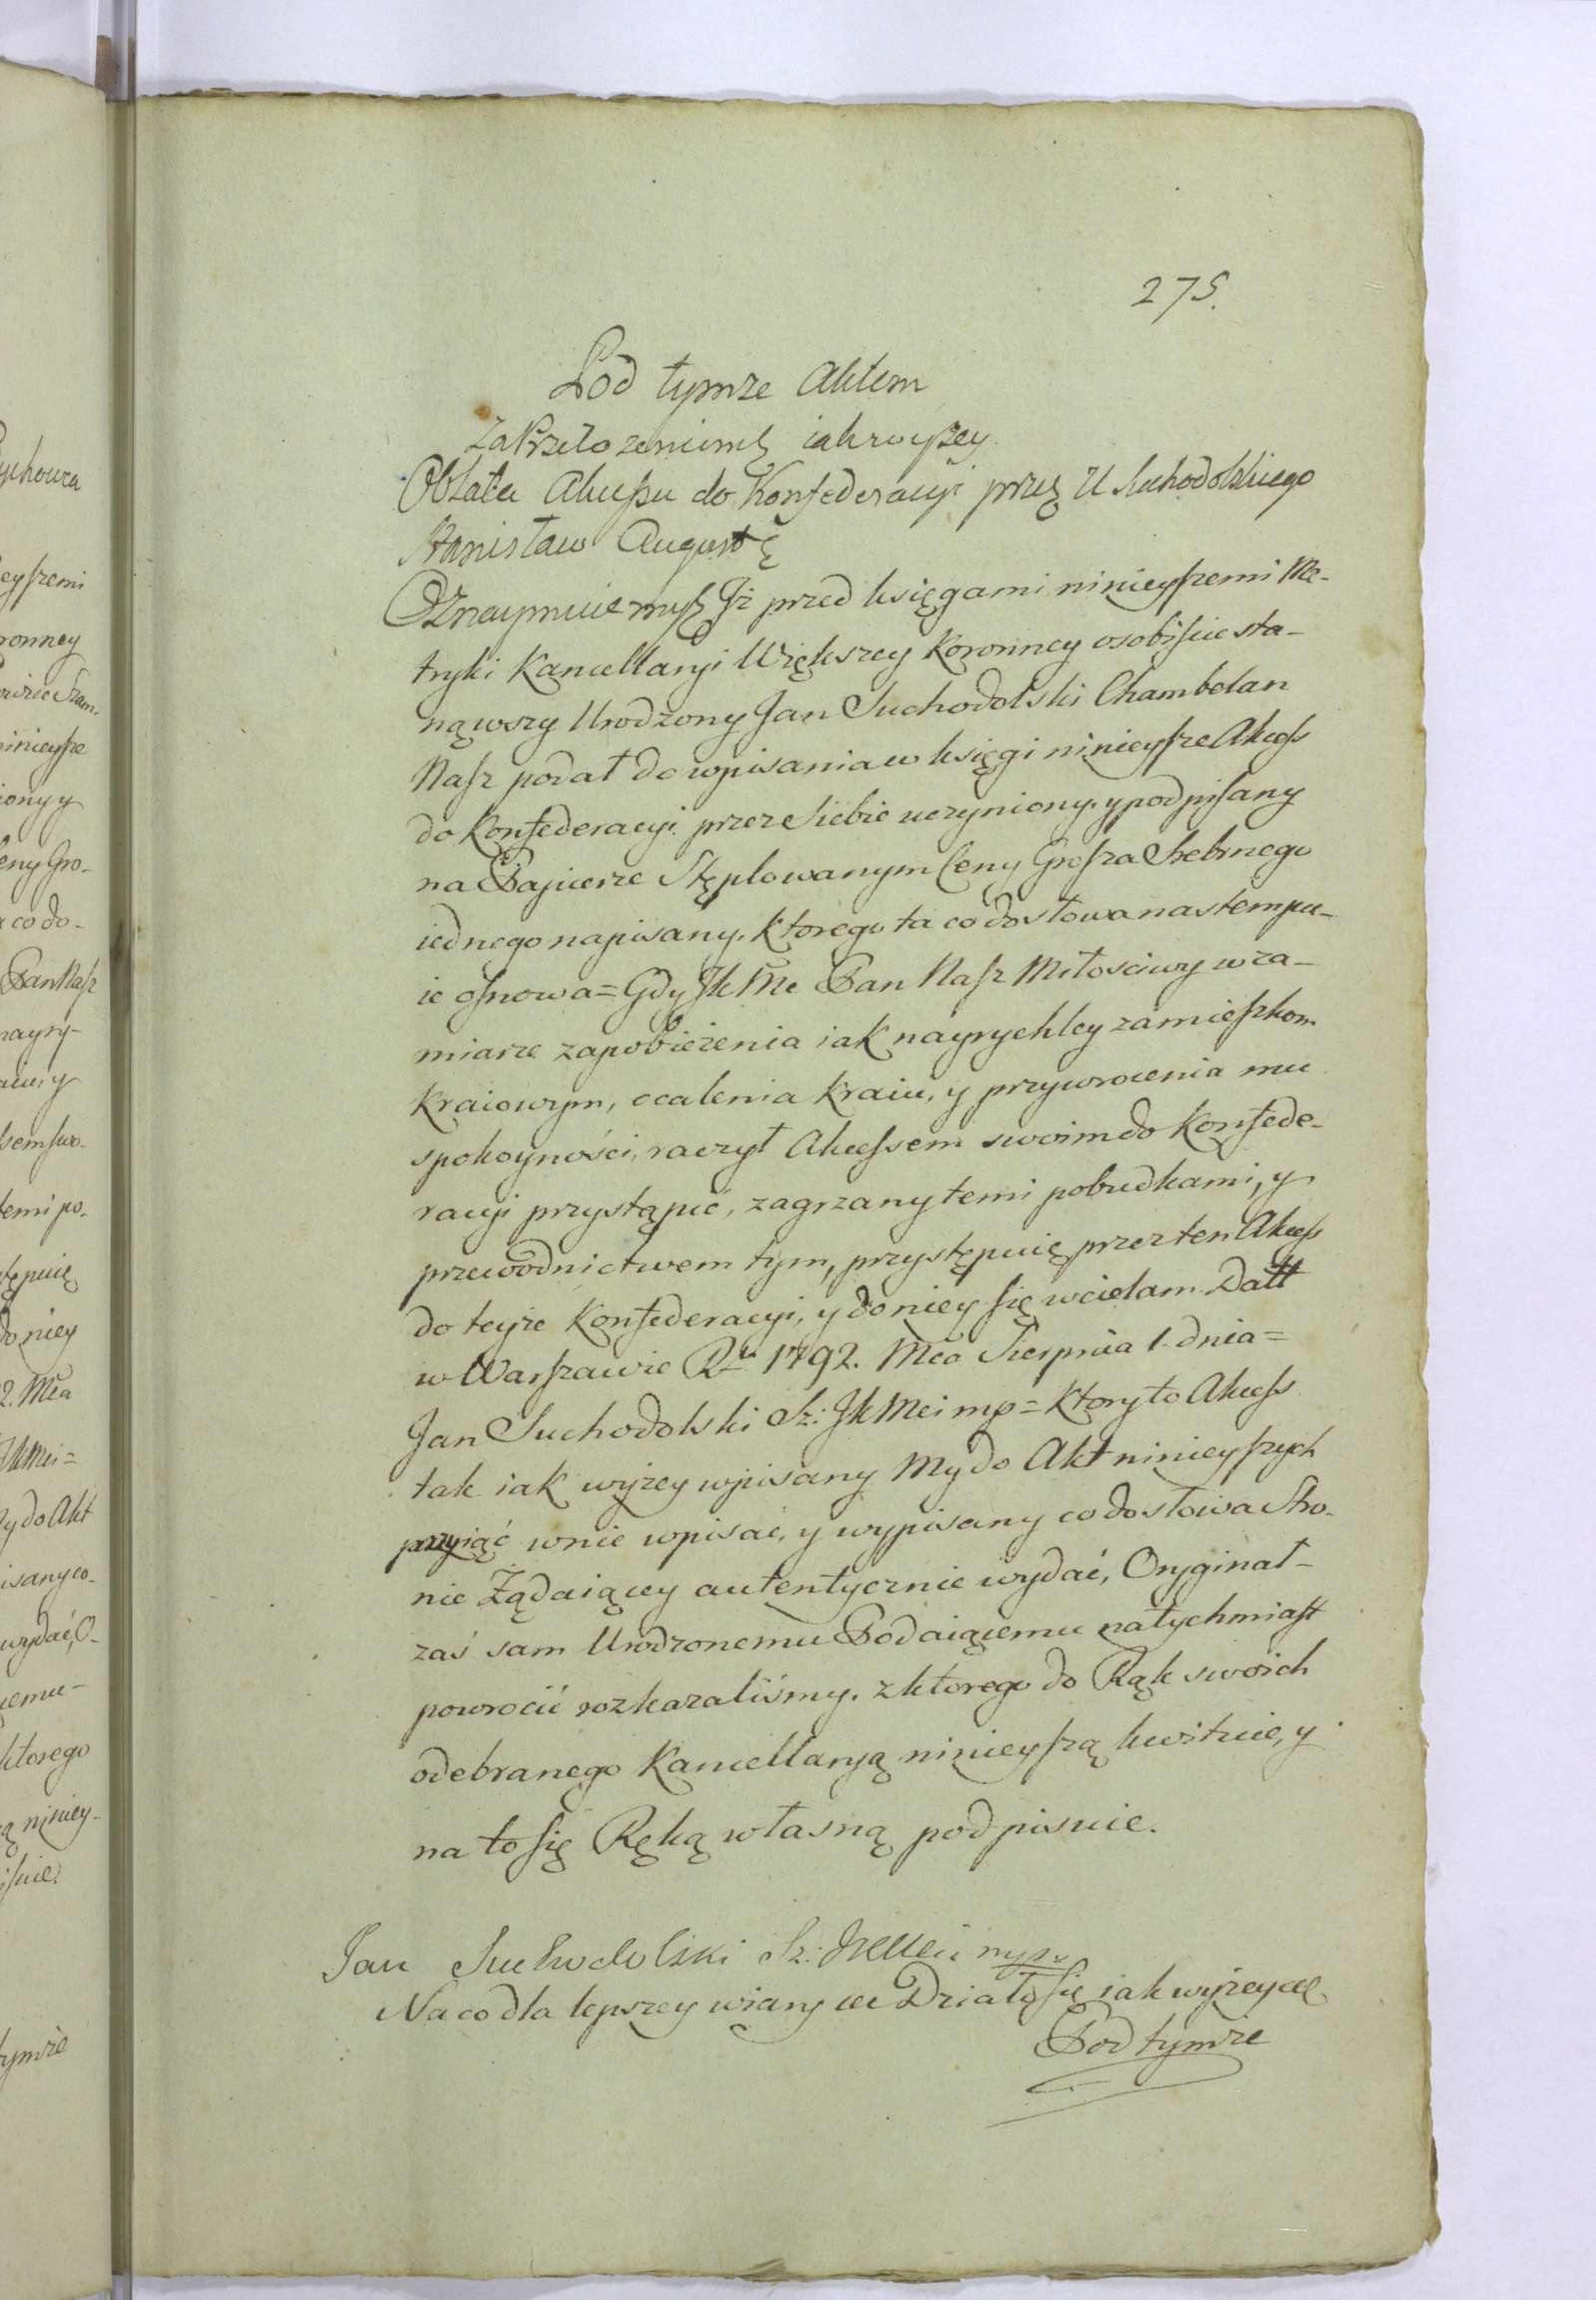 275.
Pod tymże Aktem
za Przełożeniem iak wyszey
Oblata Akcessu do Konfederacyi przez U Suchodolskiego
Stanisław August &
Oznaymuiemy Jż przed księgami ninieyszemi Me-
tryki Kancellaryi Większey Koronney osobiscie sta-
nąwszy Urodzony Jan Suchodolski Chambelan
Nasz podał do wpisania w księgi ninieysze Akcess
do Konfederacyi przez siebie uczyniony, y podpisany
na Papierze Stęplowanym Ceny Grosza Srebrnego
iednego napisany. którego ta co do słowa nastempu-
ie osnowa = Gdy JkMc Pan Nasz Miłosciwy w za-
miarze zapobieżenia iak nayrychley zamieszkom
kraiowym, ocalenia kraiu, y przywrocenia mu
spokoyności, raczył Akcessem swoim do Konfede-
racyi przystąpić, zagrzany temi pobudkami, y
przewodnictwem tym, przystępuię przez ten Akcess
do teyże Konfederacyi, y do niey się wcielam Datt
w Warszawie Rku 1792. Mca Sierpnia 1. dnia =
Jan Suchodolski Sz: JkMci mp = Który to Akcess
tak iak wyżey wpisany My do Akt ninieyszych
przyiąć w nie wpisać, y wypisany co do słowa Stro-
nie Żądaiącey autentycznie wydać, Oryginał-
zaś sam Urodzonemu Podaiącemu natychmiast
powrócić rozkazaliśmy. z którego do Rąk swoich
odebranego Kancellaryą ninieyszą kwituie, y
na to się Ręką własną podpisuie.
Jan Suchodolski Sz: JKMci mp
Na co dla lepszey wiary &c Działo się iak wyżey &c
Pod tymże